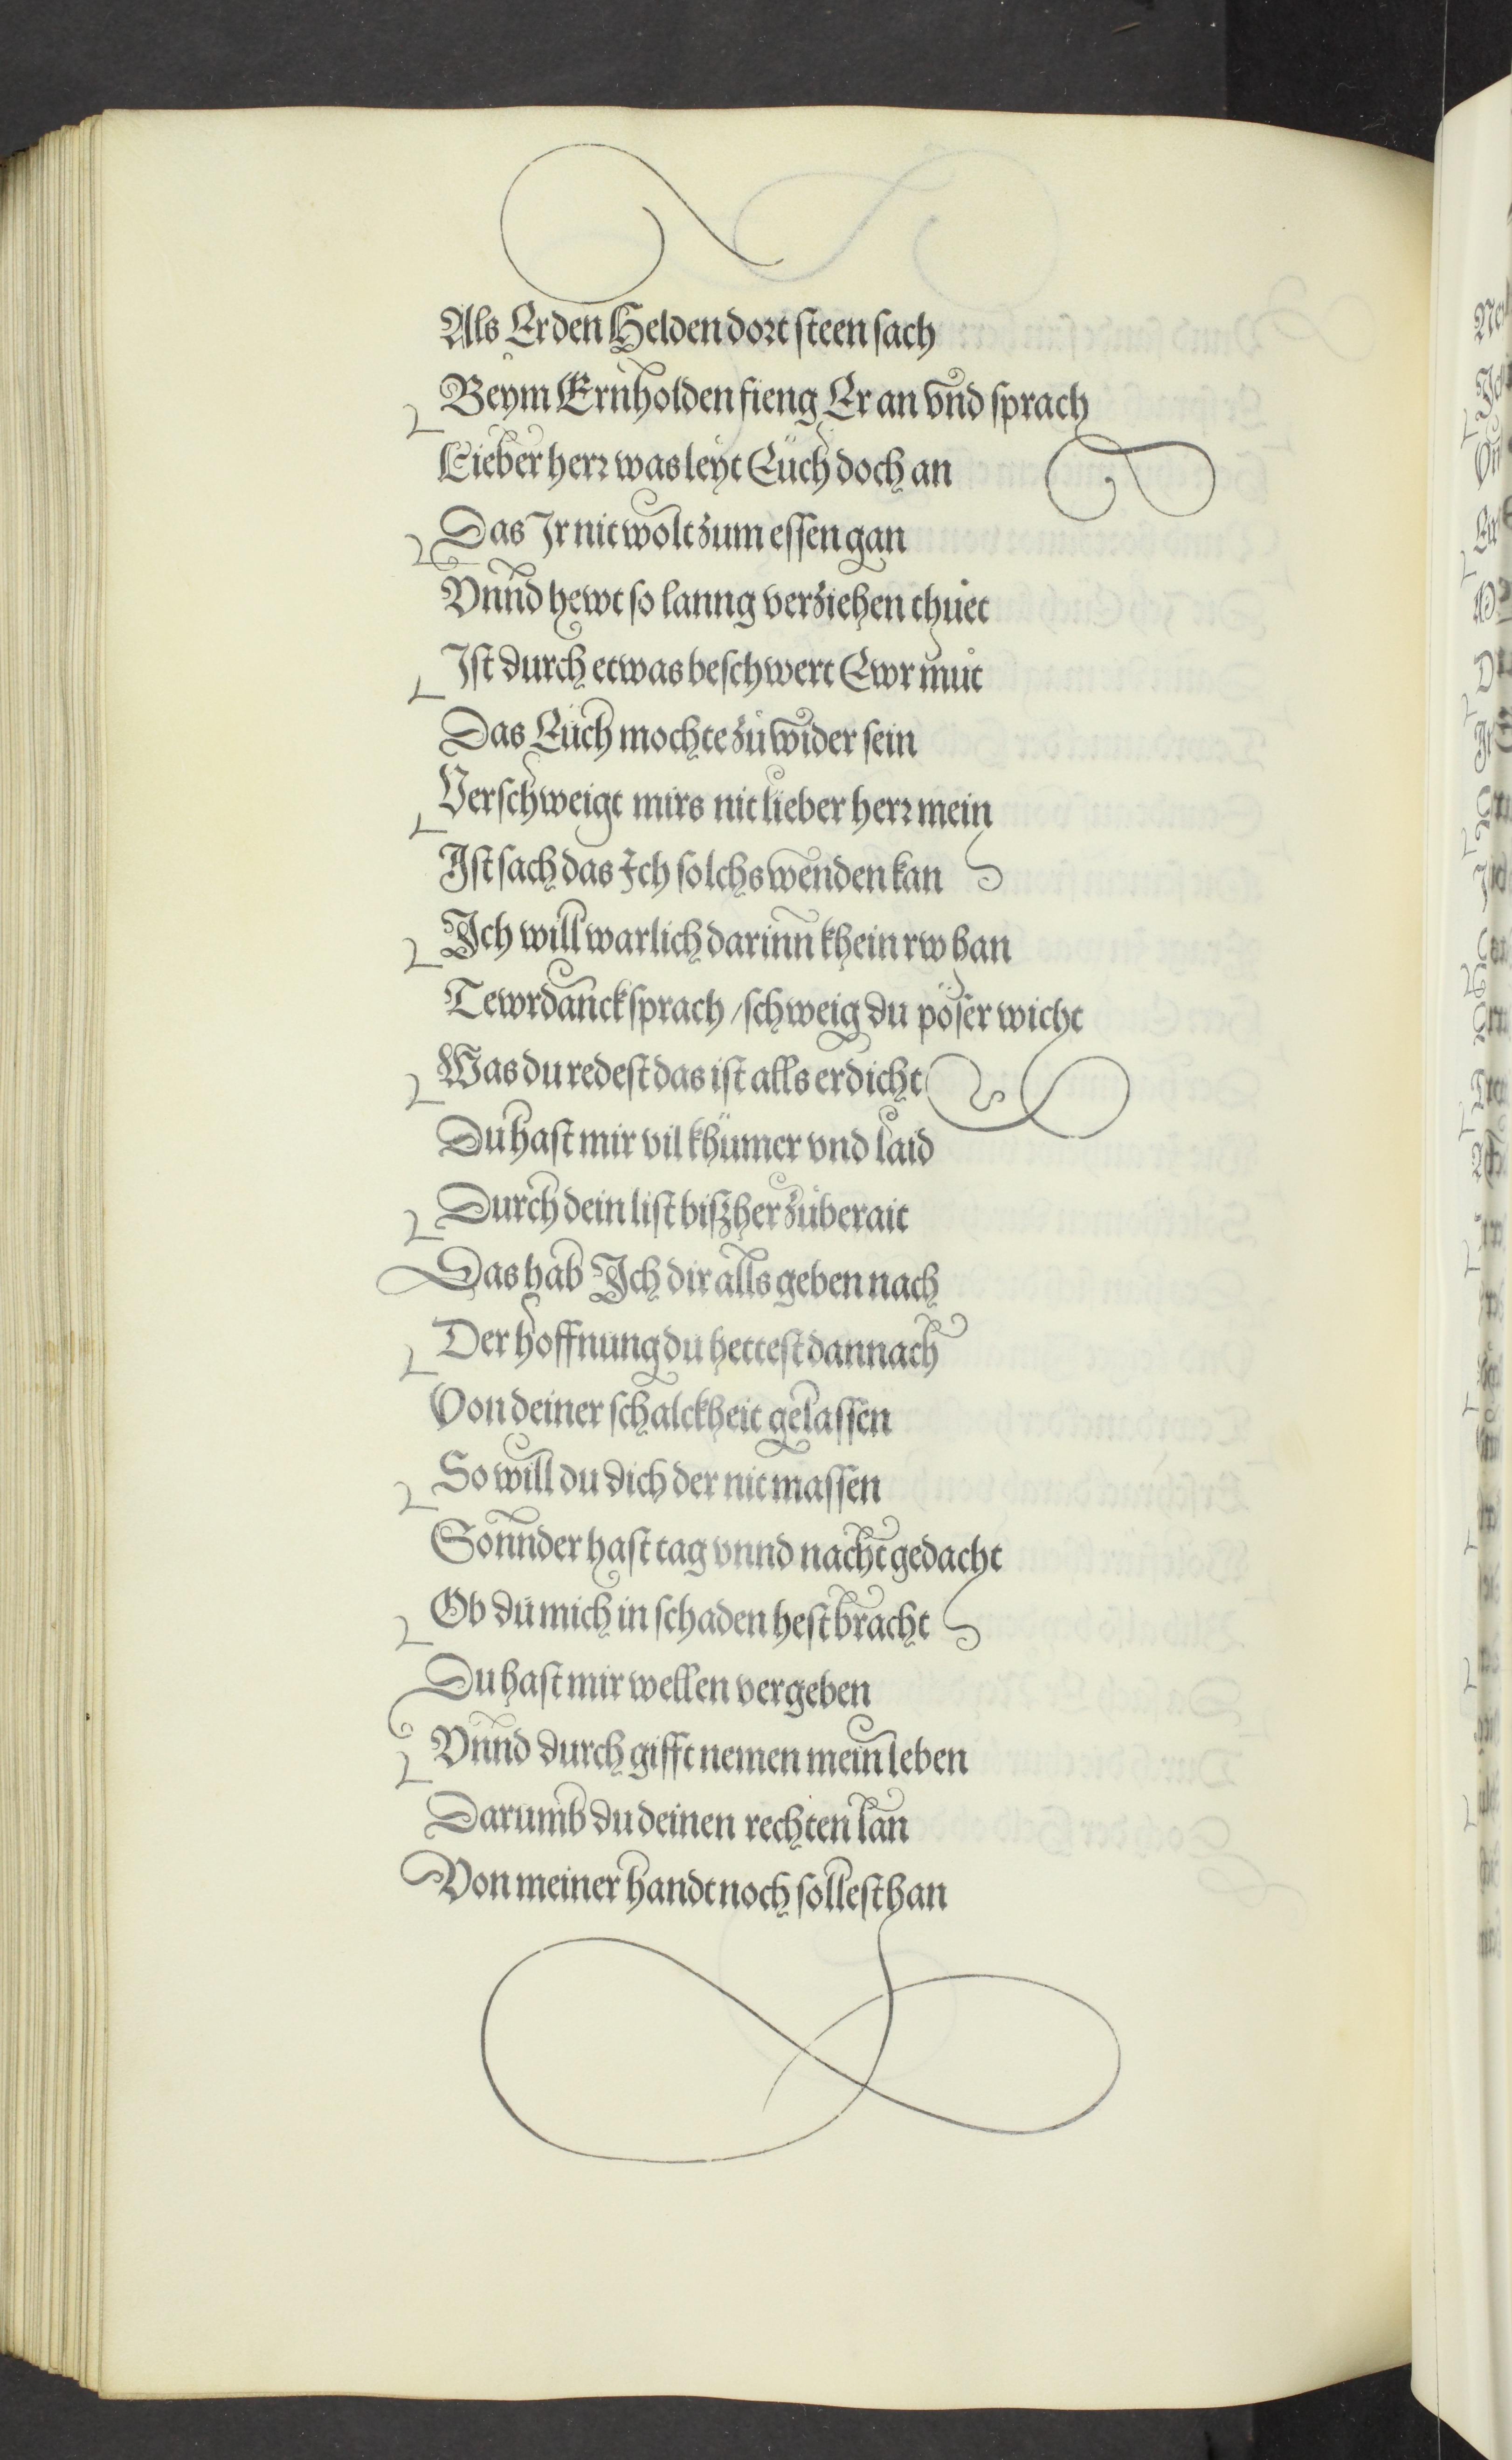 Als Er den Helden dort steen sach
Beym Ernholden fieng Er an vnd sprach
Lieber herr was leyt Euch doch an
Das Ir nit wolt zum essen gan
Vnnd hewt so lanng verziehen thuet
Ist durch etwas beschwert Ewr muͦt
Das Euch mochte zuͦ wider sein
Verschweigt mirs nit lieber herr mein
Ist sach das Ich solchs wenden kan
Ich will warlich darinn khein rw han
Tewrdannck sprach / schweig du pöser wicht
Was du redest das ist alls erdicht
Du hast mir vil khümer vnd laid
Durch dein list biszher zuͦberait
Das hab Ich dir alls geben nach
Der hoffnung du hettest dannach
Von deiner schalckheit gelassen
So will du dich der nit massen
Sonnder hast tag vnnd nacht gedacht
Ob du mich in schaden hest bracht
Du hast mir wellen vergeben
Vnnd durch gifft nemen mein leben
Darumb du deinen rechten lan
Von meiner handt noch sollest han